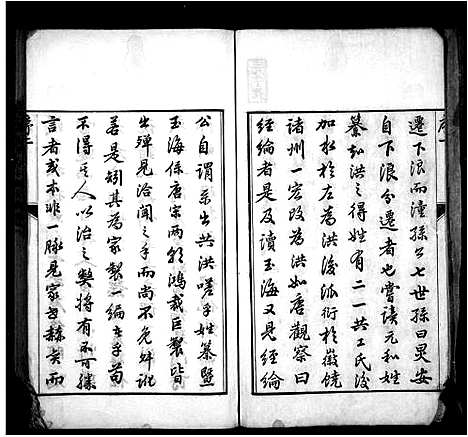 遷下浪而潼孫公七世孫曰炅安
自下浪分遷者也嘗讀元和姓
纂知洪之得姓有二一共工氏後
加水於左為洪後派衍於徽饒
諸州一宏改為洪如唐觀察曰
經綸者是及讀玉海又見經綸
公自謂系出共洪嗟乎姓纂暨
玉海係唐宋兩朝鴻裁巨製皆
出殫見洽聞之手而尚不免舛訛
若是矧其為家製一編在乎苟
不得其人以治之弊將有不可勝
言者或本非一脈見家世赫奕而